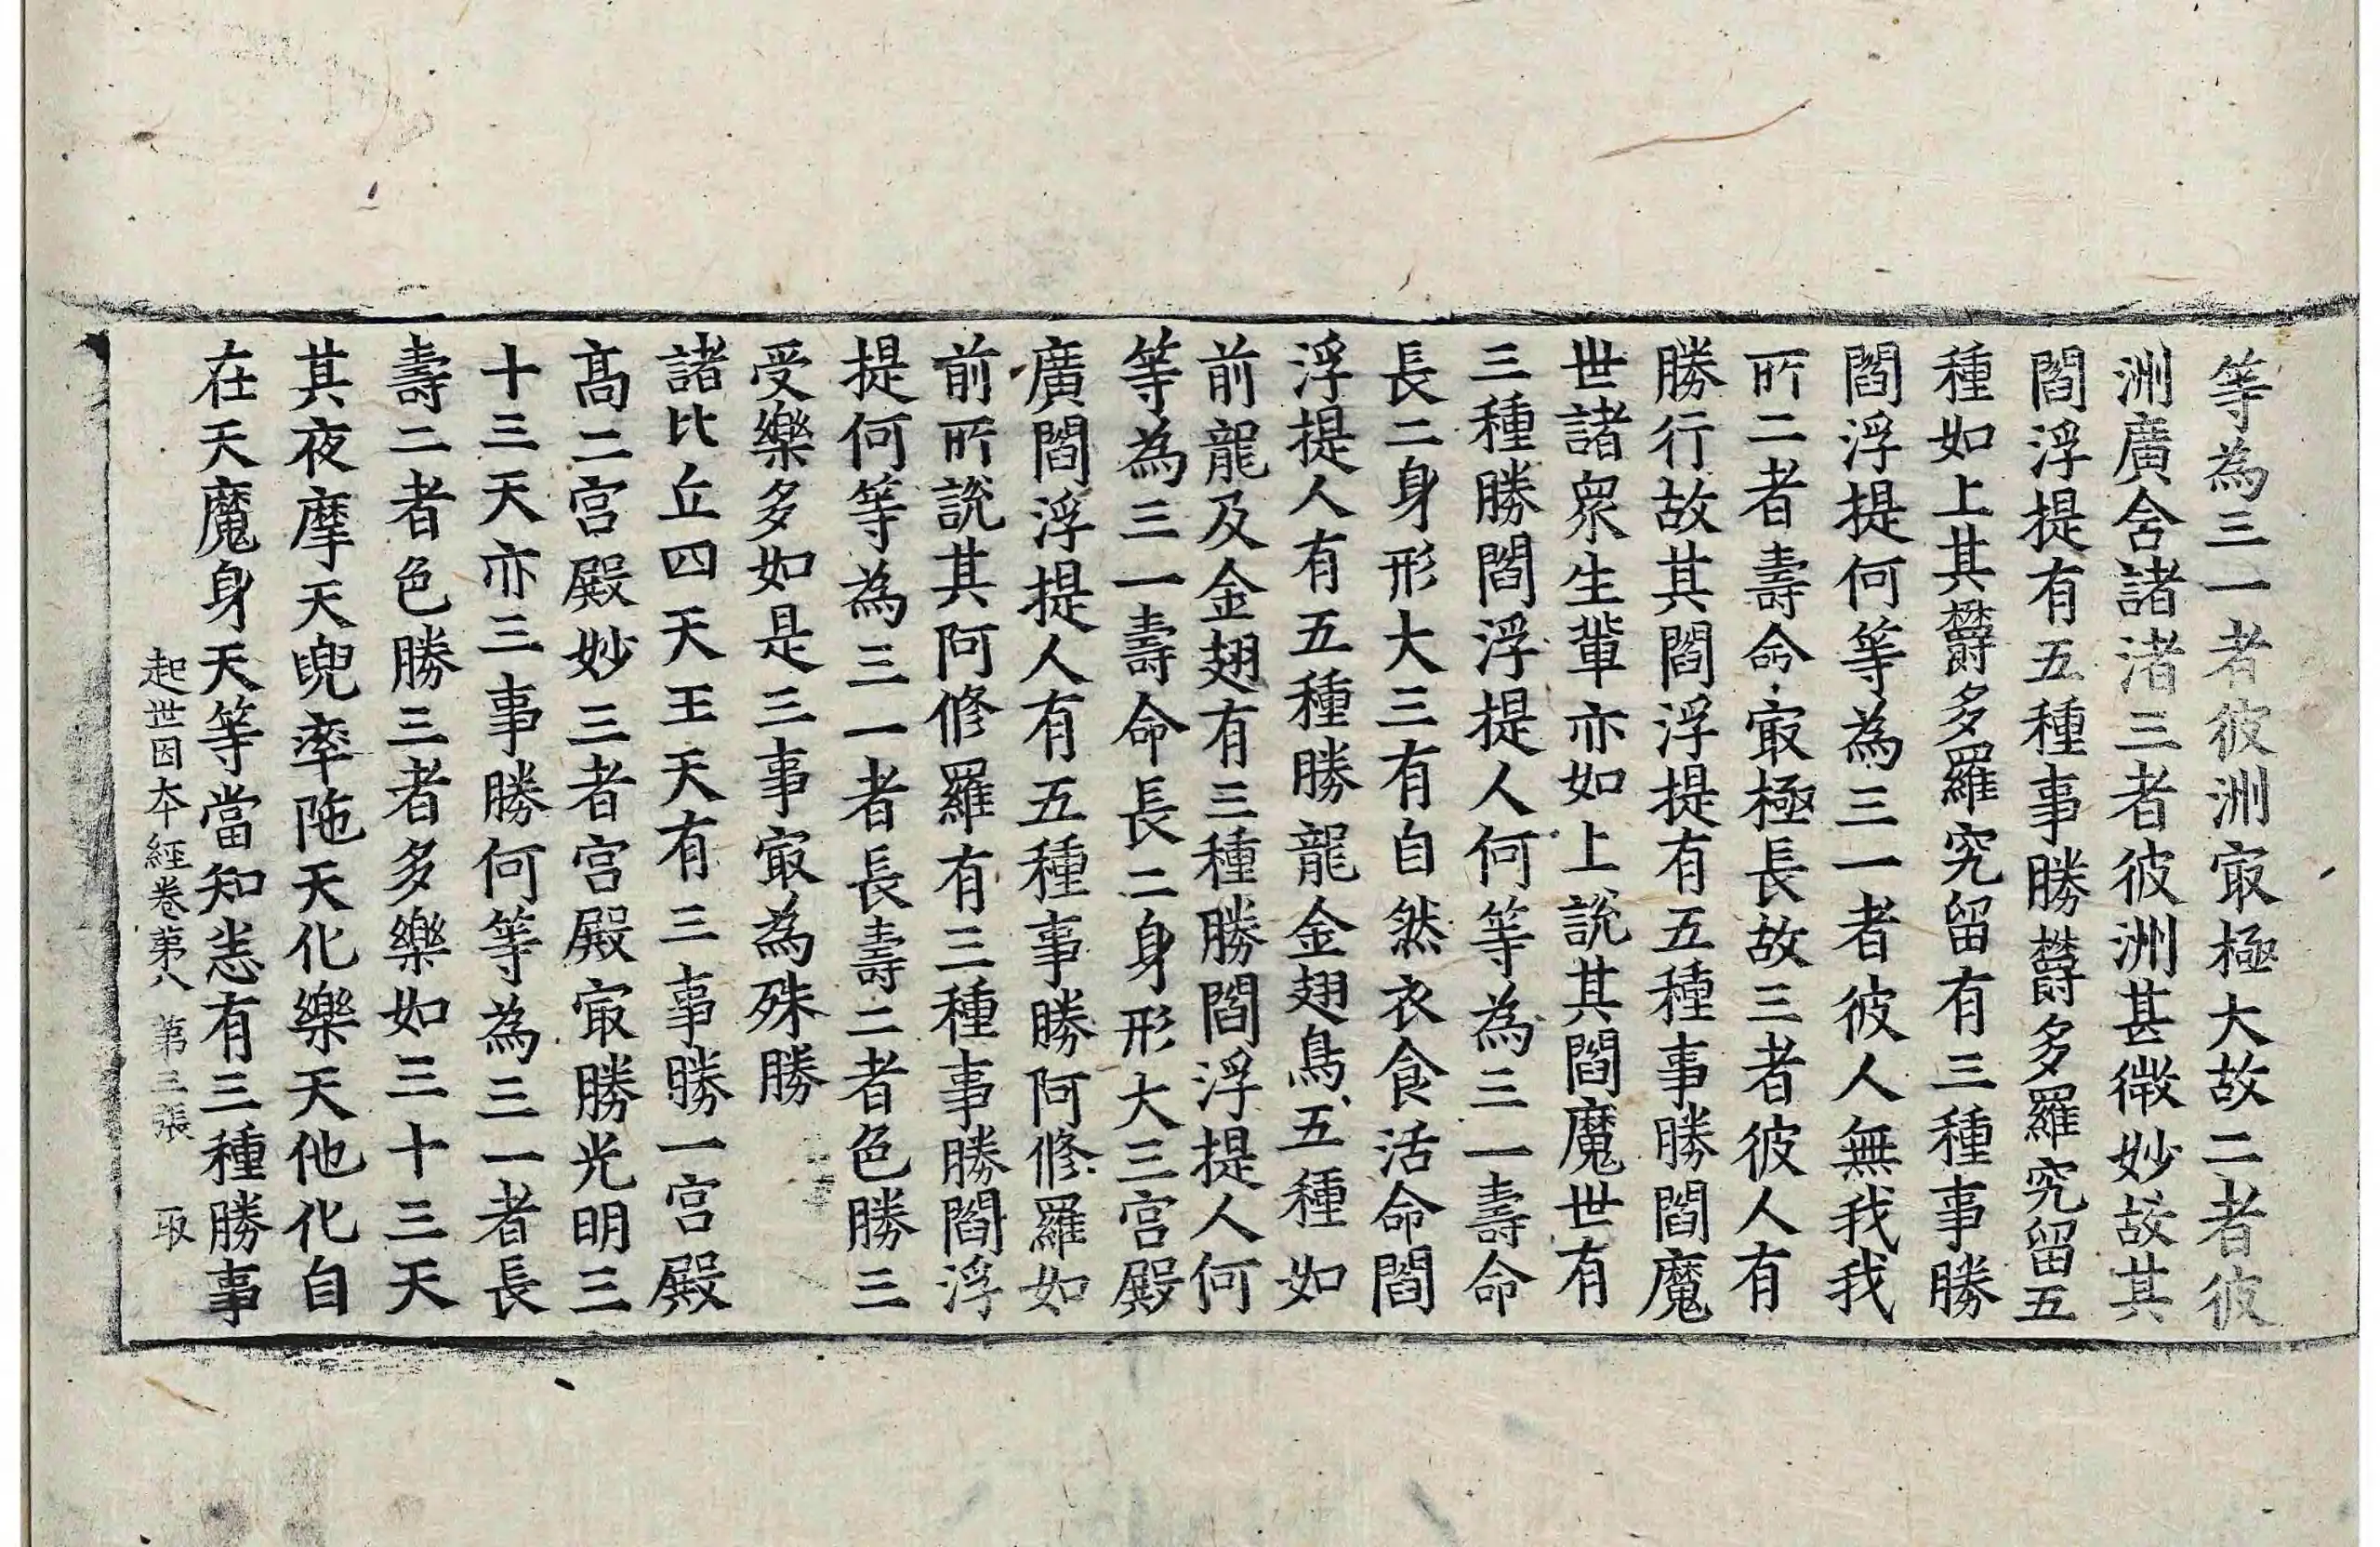 等為三一者彼洲㝡極大故二者彼
洲廣含諸渚三者彼洲甚微妙故其
閻浮提有五種事勝欝多羅究留五
種如上其欝多羅究留有三種事勝
閻浮提何等為三一者彼人無我我
所二者壽命㝡極長故三者彼人有
勝行故其閻浮提有五種事勝閻魔
世諸衆生輩亦如上說其閻魔世有
三種勝閻浮提人何等為三一壽命
長二身形大三有自然衣食活命閻
浮提人有五種勝龍金翅鳥五種如
前龍及金翅有三種勝閻浮提人何
等為三一壽命長二身形大三宮殿
廣閻浮提人有五種事勝阿修羅如
前所說其阿修羅有三種事勝閻浮
提何等為三一者長壽二者色勝三
受樂多如是三事㝡為殊勝
諸比丘四天王天有三事勝一宮殿
髙二宮殿妙三者宮殿㝡勝光明三
十三天亦三事勝何等為三一者長
壽二者色勝三者多樂如三十三天
其夜摩天兜率陁天化樂天他化自
在天魔身天等當知恙有三種勝事
起世因夲經卷苐八 苐三張 取